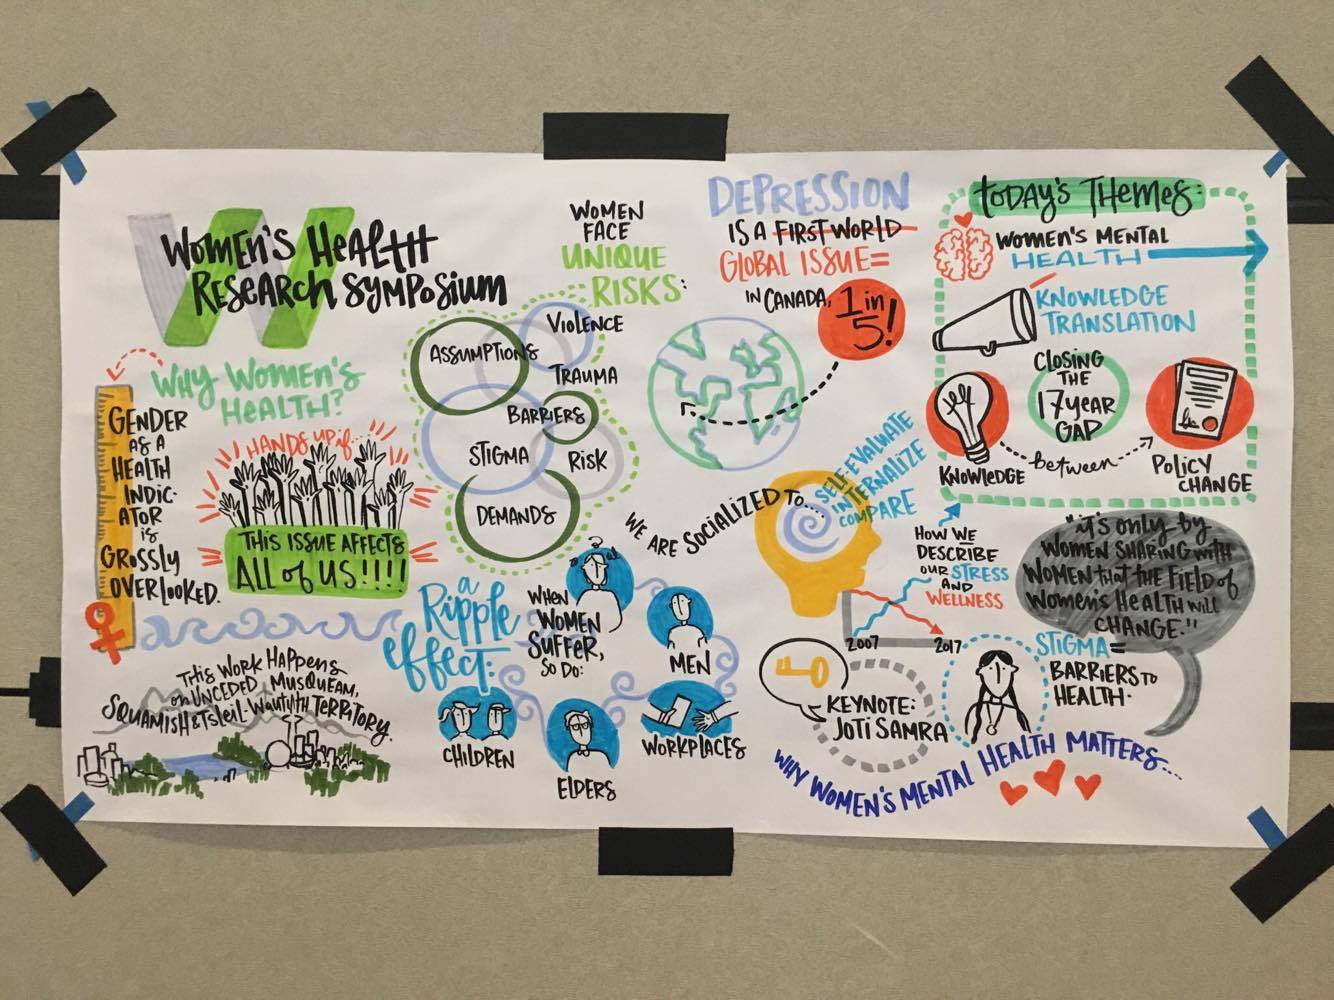 WOMEN'S HEALTH
RESEARCH SYMPOSIUM
WHY WOMEN'S
HEALTH?
GENDER
AS A
HEALTH
INDIC-
ATOR
is
GROSSLY
OVERLOOKED.
HANDS UP if...
THIS ISSUE AFFECTS
ALL of US!!!!
THIS WORK HAPPENS
on UNCEDED MUSQUEAM,
SQUAMISH & TSLEIL WAUTUTH TERRITORY.
WOMEN
FACE
UNIQUE
RISKS:
VIOLENCE
ASSUMPTIONS
TRAUMA
BARRIERS
STIGMA
RISK
DEMANDS
a
Ripple
effect:
WHEN
WOMEN
SUFFER,
SO DO:
MEN
CHILDREN
ELDERS
WORKPLACES
DEPRESSION
IS A FIRST WORLD
GLOBAL ISSUE=
IN CANADA, 1 in
5!
WE ARE SOCIALIZED TO.....
SELF-EVALUATE
INTERNALIZE
COMPARE
HOW WE
DESCRIBE
OUR STRESS
AND
WELLNESS
2007 2017
KEYNOTE:
JOTI SAMRA
STIGMA=
BARRIERS TO
HEALTH.
WHY WOMEN'S MENTAL HEALTH MATTERS....
TODAY'S THEMES:
WOMEN'S MENTAL
HEALTH
KNOWLEDGE
TRANSLATION
CLOSING
THE
17 year
GAP
KNOWLEDGE
between
POLICY
CHANGE
"it's only by
WOMEN SHARING WITH
WOMEN THAT THE FIELD of
WOMEN'S HEALTH WILL
CHANGE."